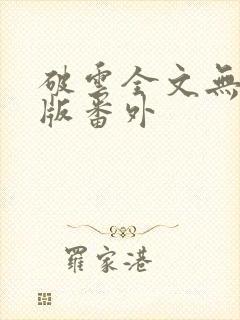 破雲全文無
版番外
羅家港